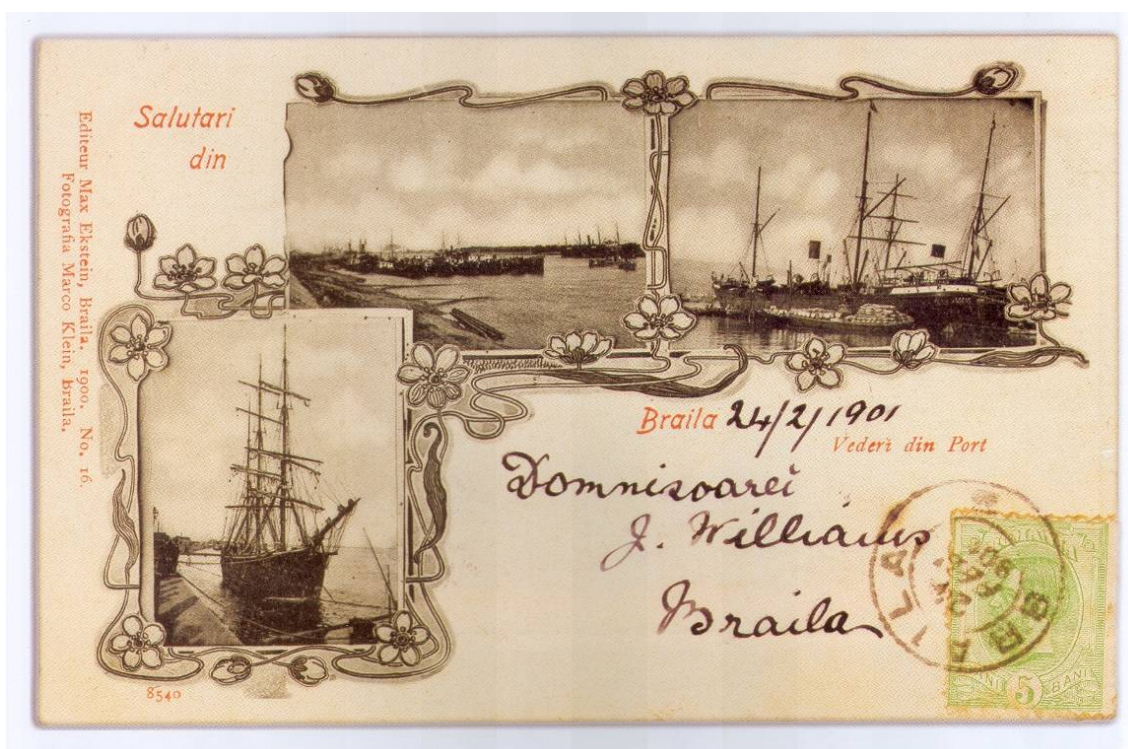 Salutari
din
Editeur Max Ekstein, Braila. 1900. No. 16.
Fotografia Marco Klein, Braila.
Braila 24/2/1901
Vederi din Port
Domnisoarei
J. Williams
Braila
BRAILA
24
901
5
BANI
8540